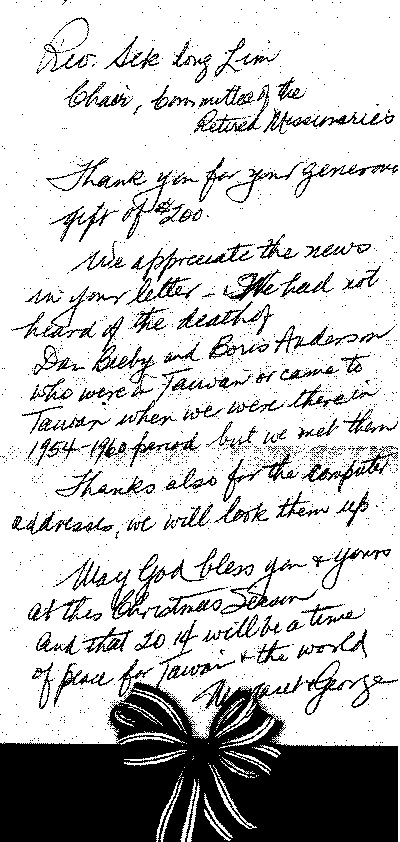 Rev. Sek long Lim
Chair, Committee of the
Retired Missionaries
Thank you for your generous
gift of $200.
We appreciate the news
in your letter - We had not
heard of the death of
Dan Beeby and Boris Anderson
who were in Taiwan or came to
Taiwan when we were there in
1954-1960 period but we met them
Thanks also for the computer
addresses, we will look them up.
May God bless you & yours
at this Christmas Season
and that 2014 will be a time
of peace for Taiwan & the world
Margaret & George